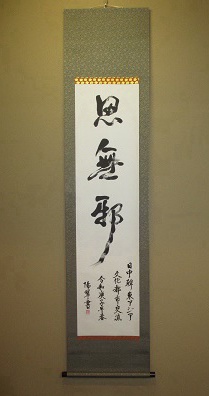 思無邪
日中韓東アジア
文化都市交流
令和庚子年春
陽馨書